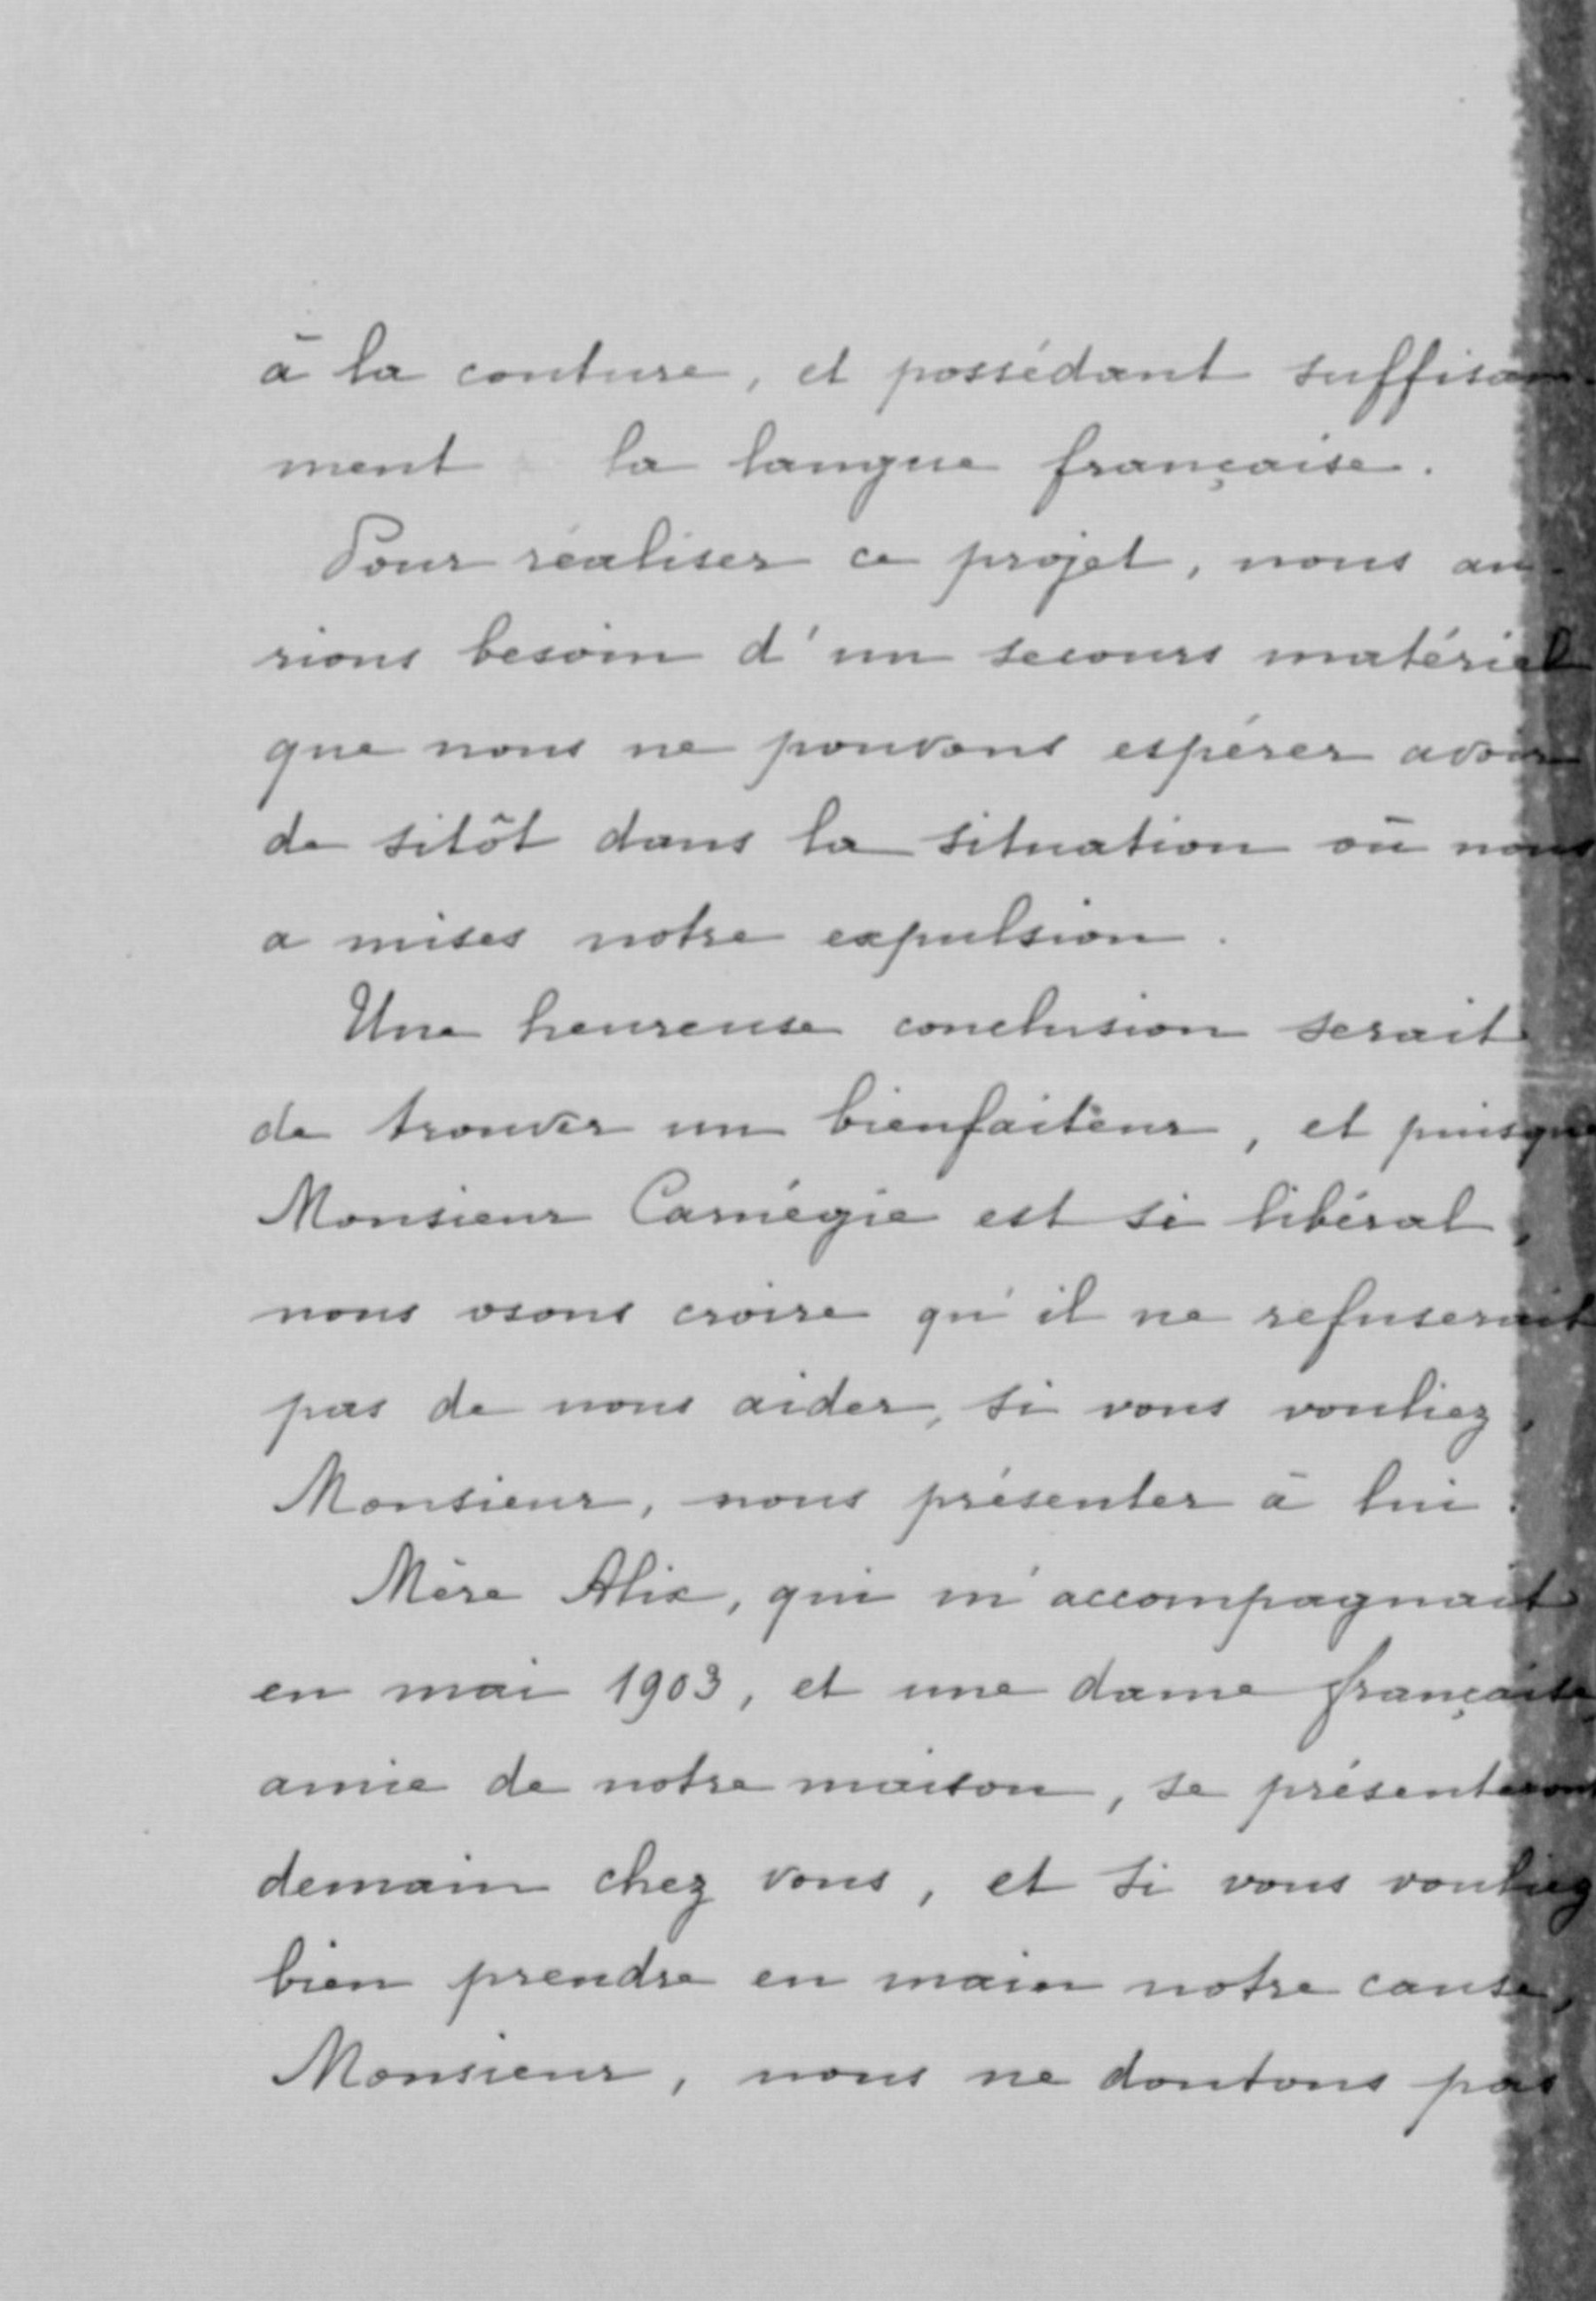 à la couture, et possédant suffisam-
ment la langue française.
Pour réaliser ce projet, nous au-
rions besoin d'un secours matériel
que nous ne pouvons espérer avoir
de sitôt dans la situation où nous
a mises notre expulsion.
Une heureuse conclusion serait
de trouver un bienfaiteur, et puisque
Monsieur Carnégie est si libéral,
nous osons croire qu'il ne refuserait
pas de nous aider, si vous vouliez,
Monsieur, nous présenter à lui.
Mère Alix, qui m'accompagnait
en mai 1903, et une dame française
amie de notre maison, se présenteront
demain chez vous, et si vous vouliez
bien prendre en main notre cause,
Monsieur, nous ne doutons pas